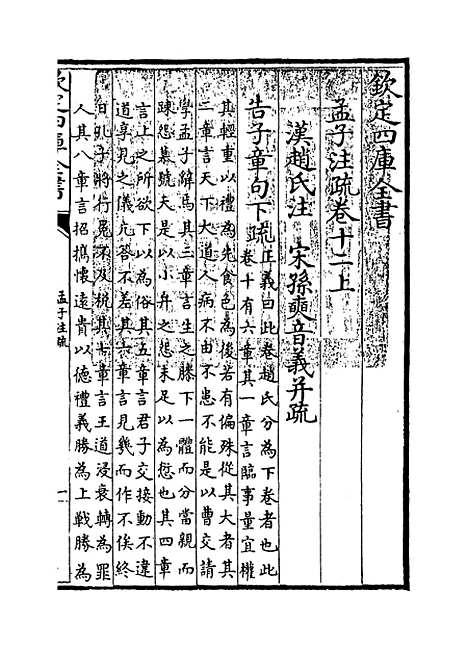 欽定四庫全書
孟子注疏卷十二上
漢趙氏注　宋孫奭音義并疏
告子章句下疏正義曰此卷趙氏分為下卷者也此
卷十有六章其一章言臨事量宜權
其輕重以禮為先食色為後若有偏殊從其大者其
二章言天下大道人病不由不患不能是以曹交請
學孟子辭焉其三章言生之膝下一體而分當親而
疎怨慕號天是以小弁之怨未足以為愆也其四章
言上之所欲下以為俗其五章言君子交接動不違
道享見之儀亢答不差其六章言見幾而作不俟終
日孔子將行冕不及稅其七章言王道浸衰轉為罪
人其八章言招攜懷遠貴以德禮義勝為上戰勝為
欽定四庫全書
孟子注疏
一